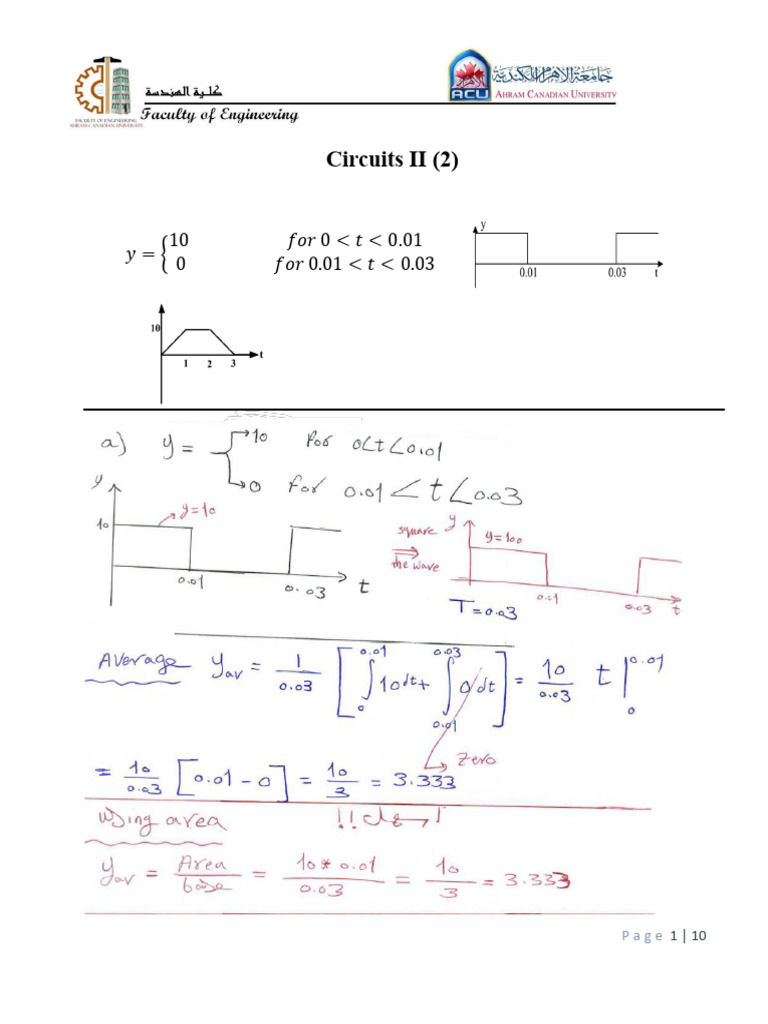 كلية الهندسة
Faculty of Engineering
FACULTY OF ENGINEERING
AHRAM CANADIAN UNIVERSITY
جامعة الأهرام الكندية
ACU AHRAM CANADIAN UNIVERSITY
Circuits II (2)
y = { 10 for 0 < t < 0.01
0 for 0.01 < t < 0.03
y
0.01 0.03 t
10
1 2 3 t
a) y = 10 for 0<t<0.01
0 for 0.01 < t < 0.03
y
10 y=10
0.01 0.03 t
square
the wave
y
y=100
0.01 0.03 t
T=0.03
Average y_av = 1/0.03 [ ∫_0^0.01 10 dt + ∫_0.01^0.03 0 dt ] = 10/0.03 t |_0^0.01
Zero
= 10/0.03 [0.01 - 0] = 10/3 = 3.333
using area
y_av = Area/base = 10*0.01/0.03 = 10/3 = 3.333
Page 1 | 10